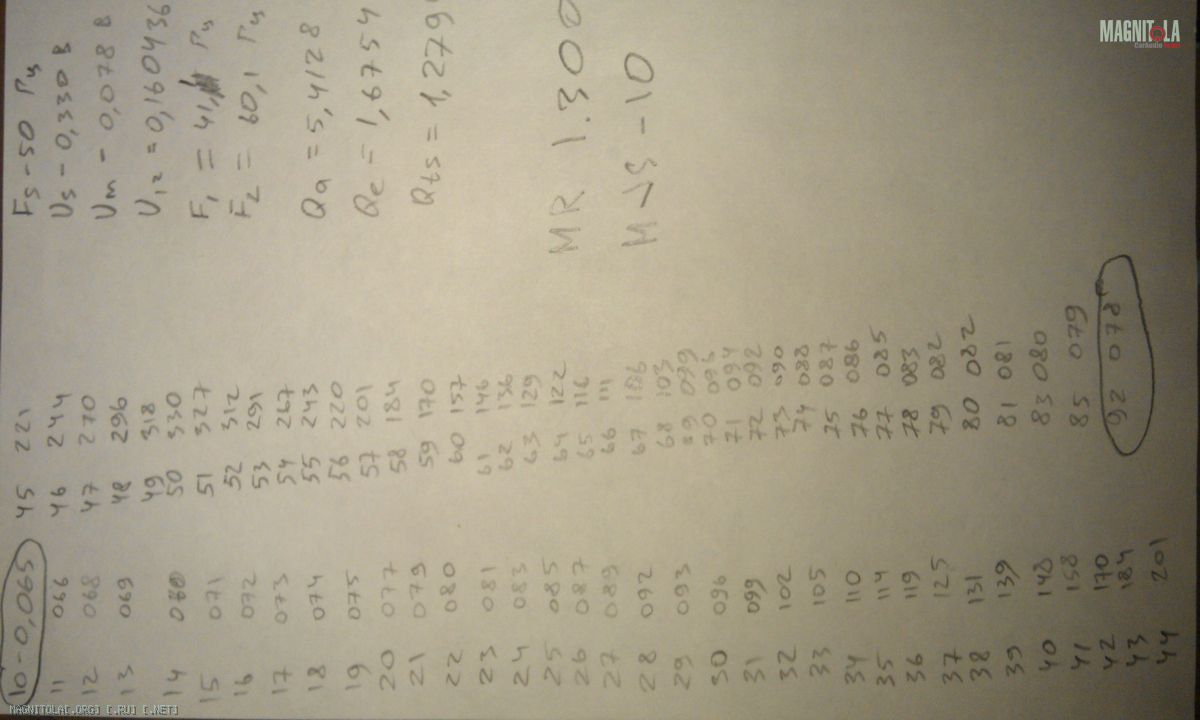 10 - 0,065
11 066
12 068
13 069
14 070
15 071
16 072
17 073
18 074
19 075
20 077
21 079
22 080
23 081
24 083
25 085
26 087
27 089
28 092
29 093
30 096
31 099
32 102
33 105
34 110
35 114
36 119
37 125
38 131
39 139
40 148
41 158
42 170
43 184
44 201
45 221
46 244
47 270
48 296
49 318
50 330
51 327
52 312
53 291
54 267
55 243
56 220
57 201
58 184
59 170
60 157
61 146
62 136
63 129
64 122
65 116
66 111
67
68 103
69 099
70 096
71 094
72 092
73 090
74 088
75 087
76 086
77 085
78 083
79 082
80 082
81 081
83 080
85 079
92 078
Fs - 50 Гц
Us - 0,330 В
Um - 0,078 В
U12 = 0,160436
F1 = 41, Гц
F2 = 60,1 Гц
Qa = 5,4128
Qe = 1,6754
Qts = 1,279
MR 1.300
M
MAGNITOLA
CarAudio
MAGNITOLA[.ORG] [.RU] [.NET]